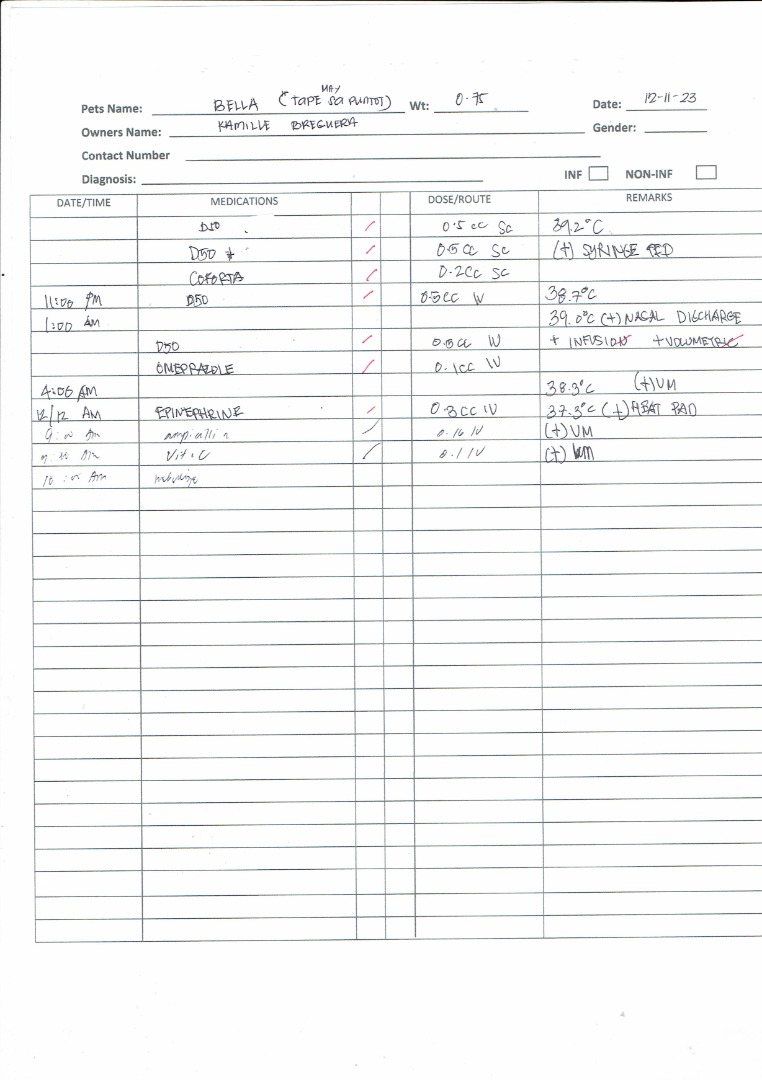 MAY
Pets Name: BELLA (* TAPE SA PUNTOT) Wt: 0.75 Date: 12-11-23
Owners Name: KAMILLE BREGUERA Gender:
Contact Number
Diagnosis: INF NON-INF
DATE/TIME MEDICATIONS DOSE/ROUTE REMARKS
D50 / 0.5 cc SC 39.2°C
D50 / 0.5 CC SC (+) SYRINGE FED
COFORTA / 0.2CC SC
11:00 PM D50 / 0.5CC IV 38.7°C
1:00 AM 39.0°C (+) NASAL DISCHARGE
D50 / 0.5CC IV + INFUSION + VOLUMETRIC
OMEPRAZOLE / 0.1CC IV
4:00 AM 38.3°C (+) VM
12/12 AM EPINEPHRINE / 0.3CC IV 37.3°C (+) HEAT PAD
9:00 AM / 0.16 IV (+) VM
AM Vit C / 0.1 IV (+)
10:00 AM